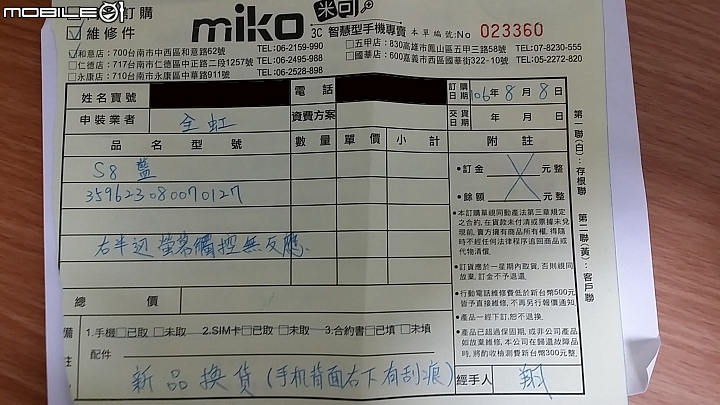 MOBILE01
訂購
☑維修件
miko 米可 3C 智慧型手機專賣 本單編號:No 023360
☑和意店:700台南市中西區和意路62號 TEL:06-2159-990
□仁德店:717台南市仁德區中正路二段1257號 TEL:06-2495-988
□永康店:710台南市永康區中華路911號 TEL:06-2528-898
□五甲店:830高雄市鳳山區五甲三路58號 TEL:07-8230-555
□國華店:600嘉義市西區國華街322-10號 TEL:05-2272-820
姓名寶號 電話 訂購日期 106年8月8日
申裝業者 全虹 資費方案 交貨日期 年 月 日
品名型號 數量 單價 小計 附註
S8 藍
359623080070127
右半边螢幕觸控無反應
•訂金 元整
•餘額 元整
•本訂購單視同動產法第三章規定之合約,在貨款未付清或票據未兌現前,賣方擁有商品所有權,得隨時不經任何法律程序追回商品或代物清償.
•訂貨應於一星期內取貨,否則視同放棄,訂金不予退還.
•行動電話維修費低於新台幣500元皆予直接維修,不再另行報價通知
•產品一經下訂,恕不退換.
•產品已超過保固期,或非公司產品如放棄維修,本公司在歸還故障品時,將酌收檢測費新台幣300元整.
總價
備註
1.手機□已取 □未取 2.SIM卡□已取 □未取 3.合約書□已填 □未填
配件
新品換貨(手机背面右下有刮痕)
經手人 翔
第一聯(白):存根聯 第二聯(黃):客戶聯